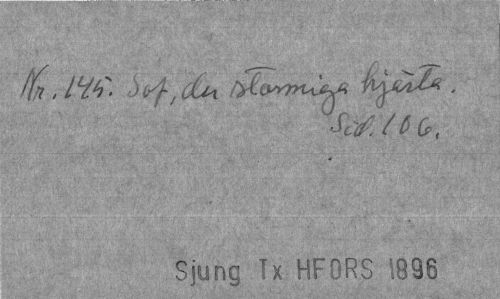 Nr. 145. Sof, du stormiga hjärta.
Sid. 106.
Sjung Tx HFORS 1896